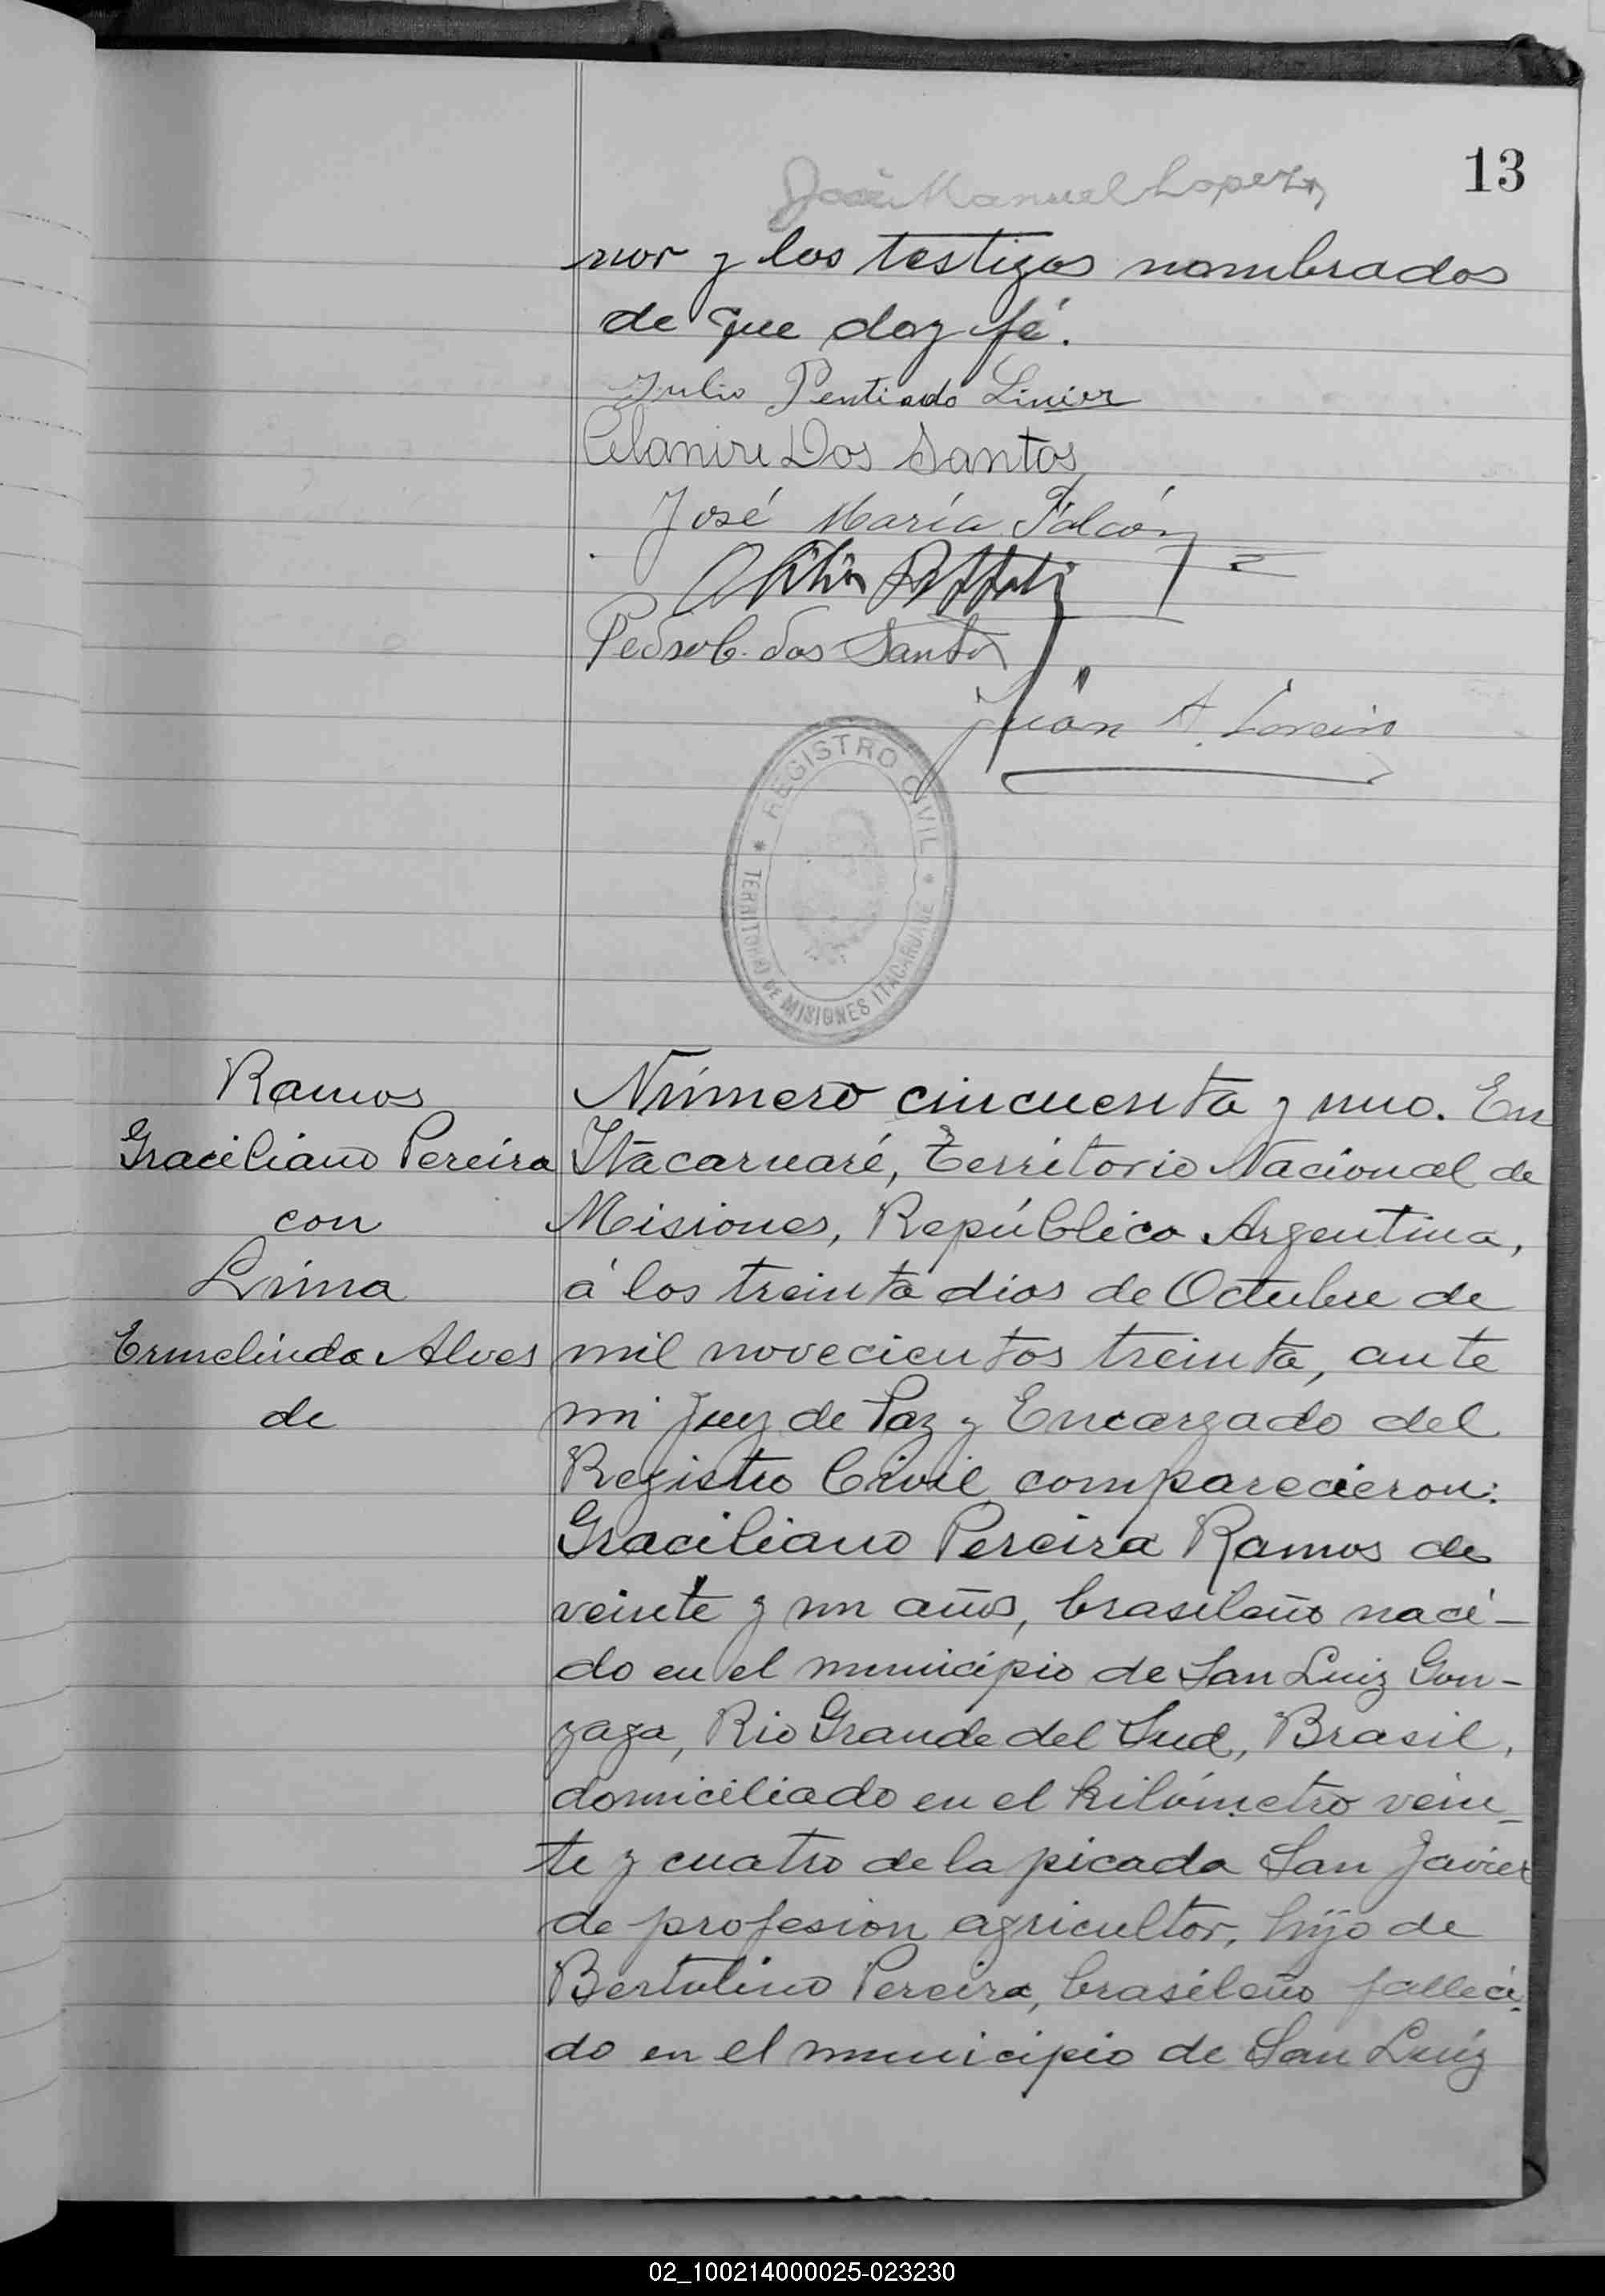 13
José Manuel Lopez
nor y los testigos nombrados
de que doy fé.
Julio Pentiado Linier
Celanire Dos Santos
José María Falcón
Pedro C. dos Santos
Juan A. Loreiro
REGISTRO CIVIL
TERRITORIO DE MISIONES ITACARUARE
Ramos
Graciliano Pereira
con
Lima
Ermelinda Alves
de
Número cincuenta y uno. En
Itacaruaré, Territorio Nacional de
Misiones, República Argentina,
á los treinta dias de Octubre de
mil novecientos treinta, ante
mi Juez de Paz y Encargado del
Registro Civil comparecieron:
Graciliano Pereira Ramos de
veinte y un años, brasileño naci-
do en el municipio de San Luiz Gon-
zaga, Rio Grande del Sud, Brasil,
domiciliado en el kilómetro vein-
te y cuatro de la picada San Javier
de profesion agricultor, hijo de
Bertulino Pereira, brasileño falleci-
do en el municipio de San Luiz
02_100214000025-023230